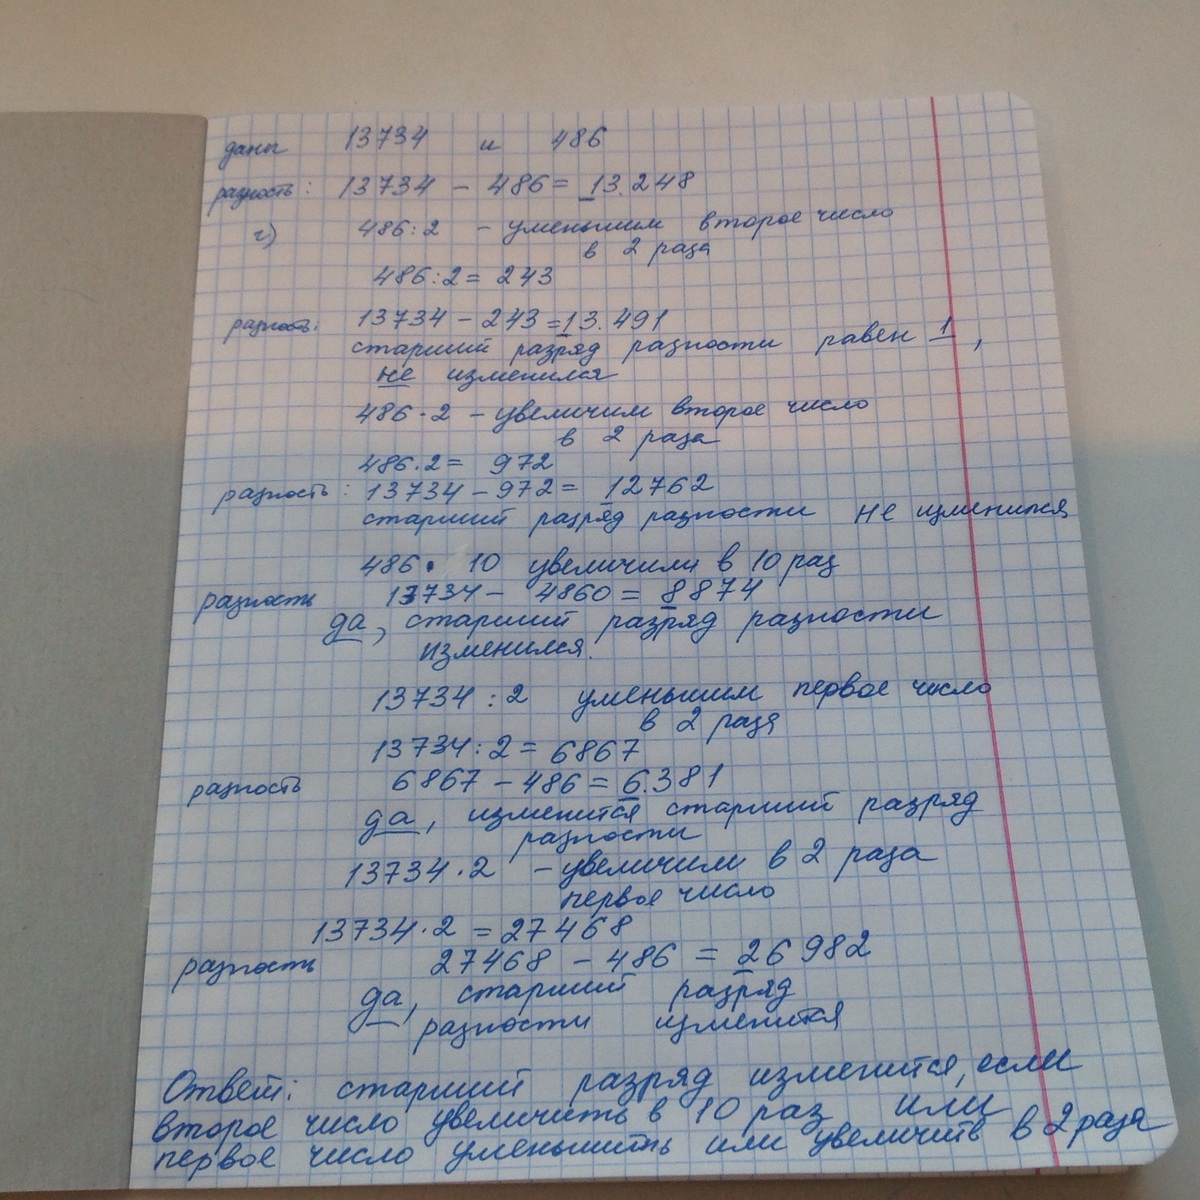 даны 13734 и 486
разность: 13734 - 486 = 13.248
г) 486:2 - уменьшим второе число
в 2 раза
486:2 = 243
разность. 13734 - 243 = 13.491
старший разряд разности равен 1,
не изменился
486·2 - увеличим второе число
в 2 раза
486·2 = 972
разность: 13734 - 972 = 12762
старший разряд разности не изменится
486· 10 увеличили в 10 раз
разность 13734 - 4860 = 8874
да, старший разряд разности
изменился.
13734 : 2 уменьшим первое число
в 2 раза
13734:2 = 6867
разность 6867 - 486 = 6.381
да, изменится старший разряд
разности
13734·2 - увеличим в 2 раза
первое число
13734·2 = 27468
разность 27468 - 486 = 26982
да, старший разряд
разности изменится
Ответ: старший разряд изменится, если
второе число увеличить в 10 раз или
первое число уменьшить или увеличить в 2 раза